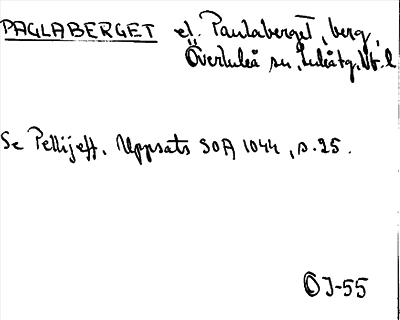 PAGLABERGET el. Paulaberget, berg,
Överluleå sn, Luleå tg, Vb. l
Se Pellijeff, Uppsats SOA 1044, s. 25.
OJ-55